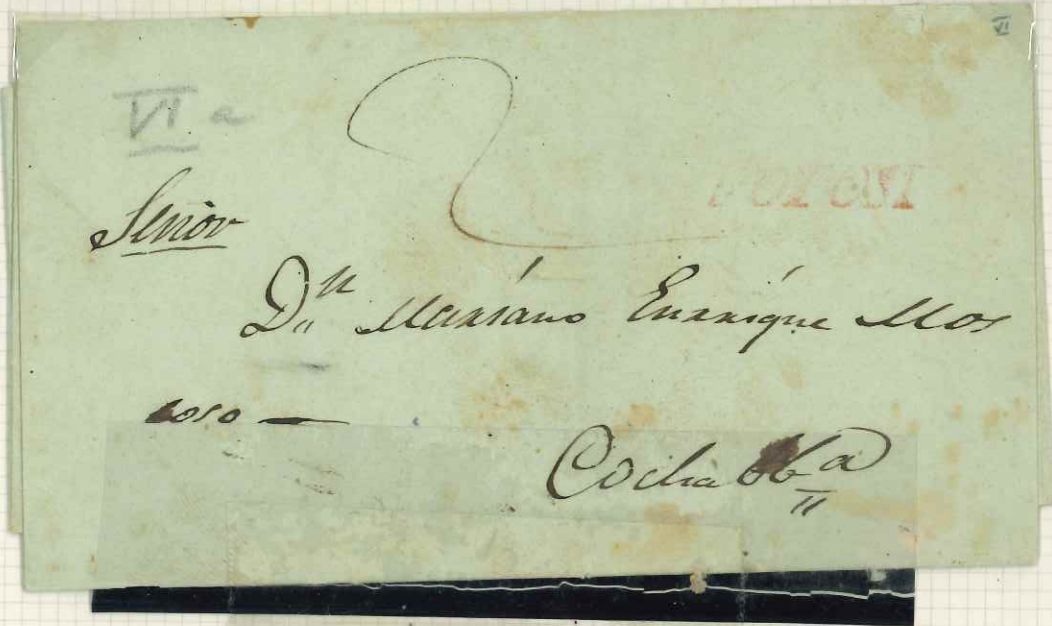 VI
VI a
2
POTOSI
Señor
Dn Mariano Enrrique Mos
coso —
Cochabba